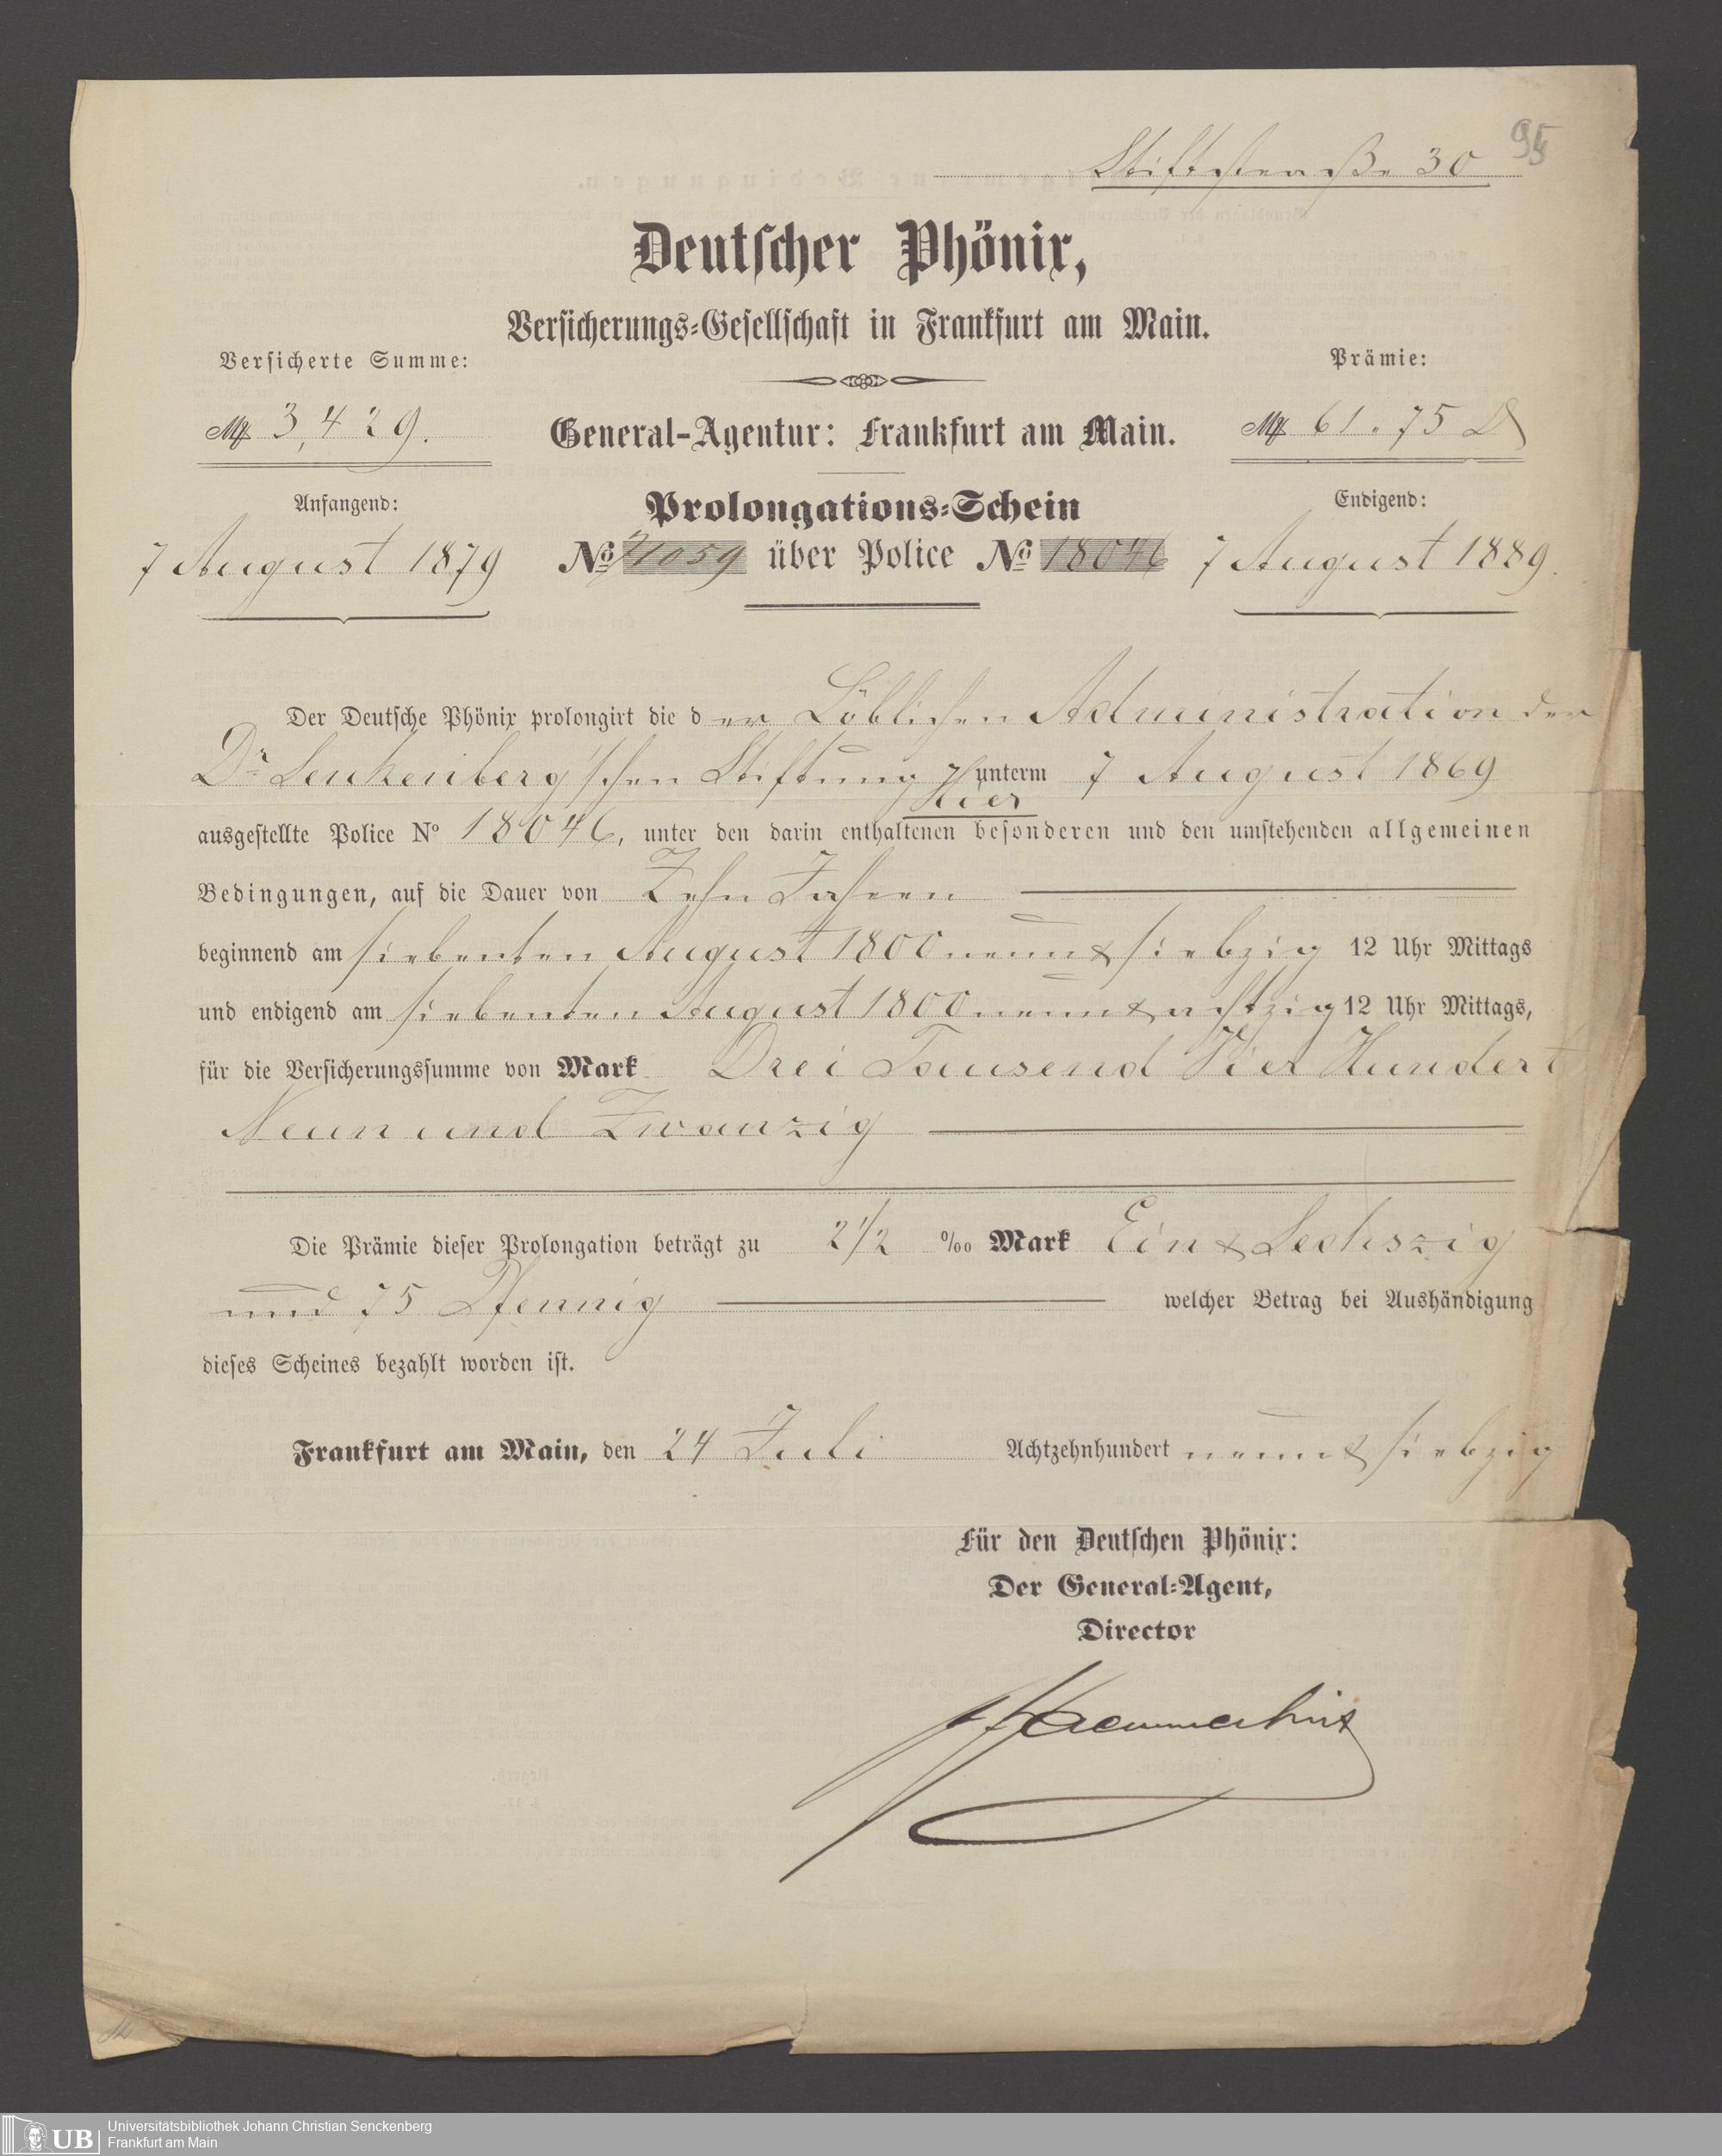 95
Stiftstraße 30
Deutscher Phönix,
Versicherungs-Gesellschaft in Frankfurt am Main.
Versicherte Summe:
Prämie:
Mk 3,429.
General-Agentur: Frankfurt am Main.
Mk 61.75 D
Anfangend:
Prolongations-Schein
Endigend:
7 August 1879
No 21059 über Police No 18046
7 August 1889.
Der Deutsche Phönix prolongirt die der Löblichen Administration der
Dr Senkenberg'schen Stiftung unterm 7 August 1869
hier
ausgestellte Police No 18046, unter den darin enthaltenen besonderen und den umstehenden allgemeinen
Bedingungen, auf die Dauer von Zehn Jahren
beginnend am siebenten August 1800 neun & siebzig 12 Uhr Mittags
und endigend am siebenten August 1800 neun & achtzig 12 Uhr Mittags,
für die Versicherungssumme von Mark Drei Tausend Vier Hundert
Neun und Zwanzig
Die Prämie dieser Prolongation beträgt zu 2 1/2 ‰ Mark Ein & Sechszig
und 75 Pfennig welcher Betrag bei Aushändigung
dieses Scheines bezahlt worden ist.
Frankfurt am Main, den 24 Juli Achtzehnhundert neun & siebzig
Für den Deutschen Phönix:
Der General-Agent,
Director
UB
Universitätsbibliothek Johann Christian Senckenberg
Frankfurt am Main